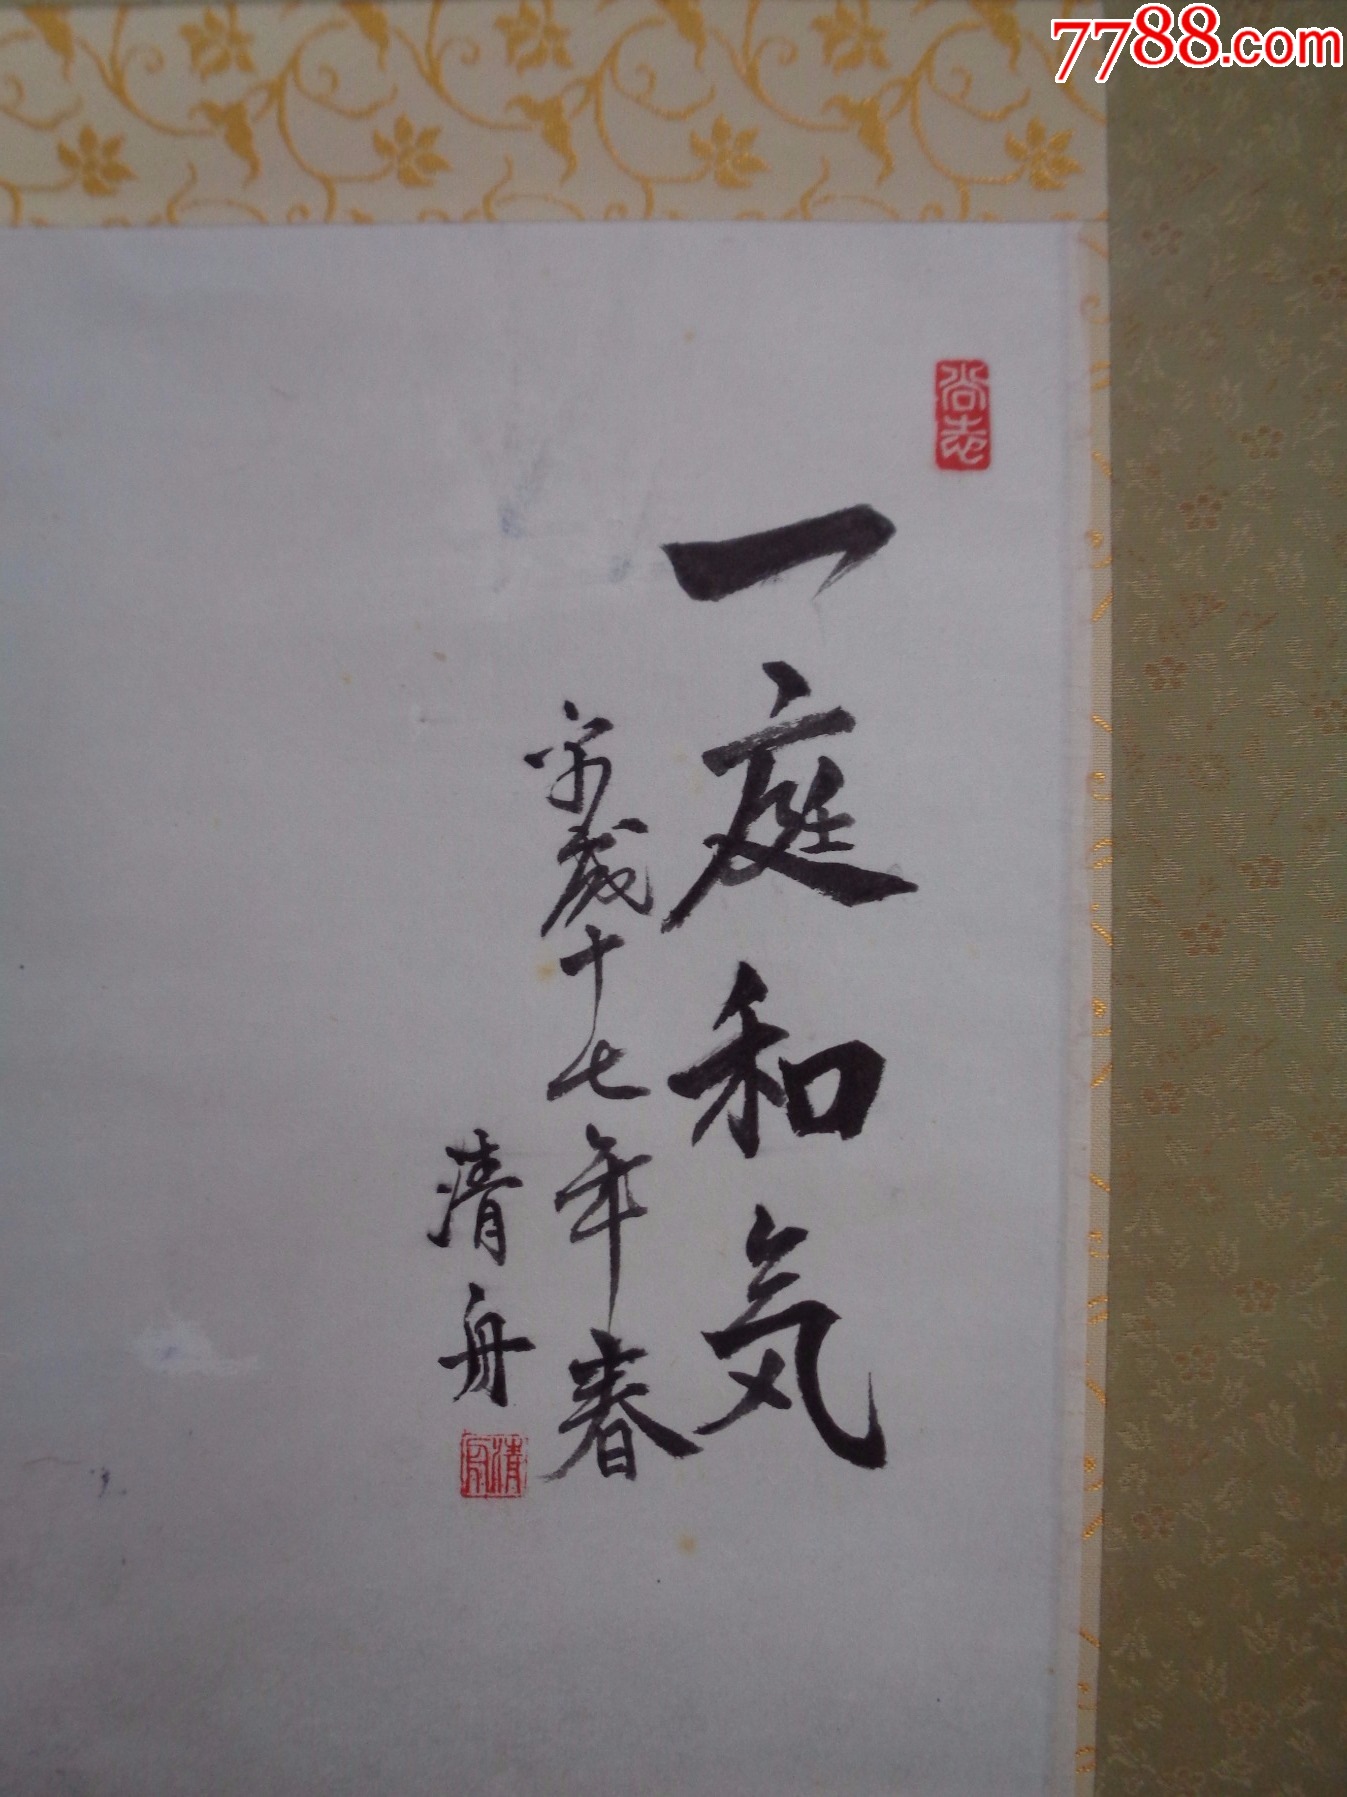 7788.com
尚志
一庭和気
平成十七年春
清舟